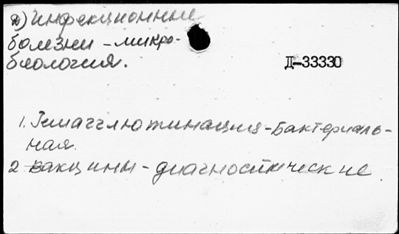 я) инфекционные
болезни - микро-
биология.
Д-33330
1. Гемагглютинация - бактериаль-
ная.
2 вакцины - диагностические